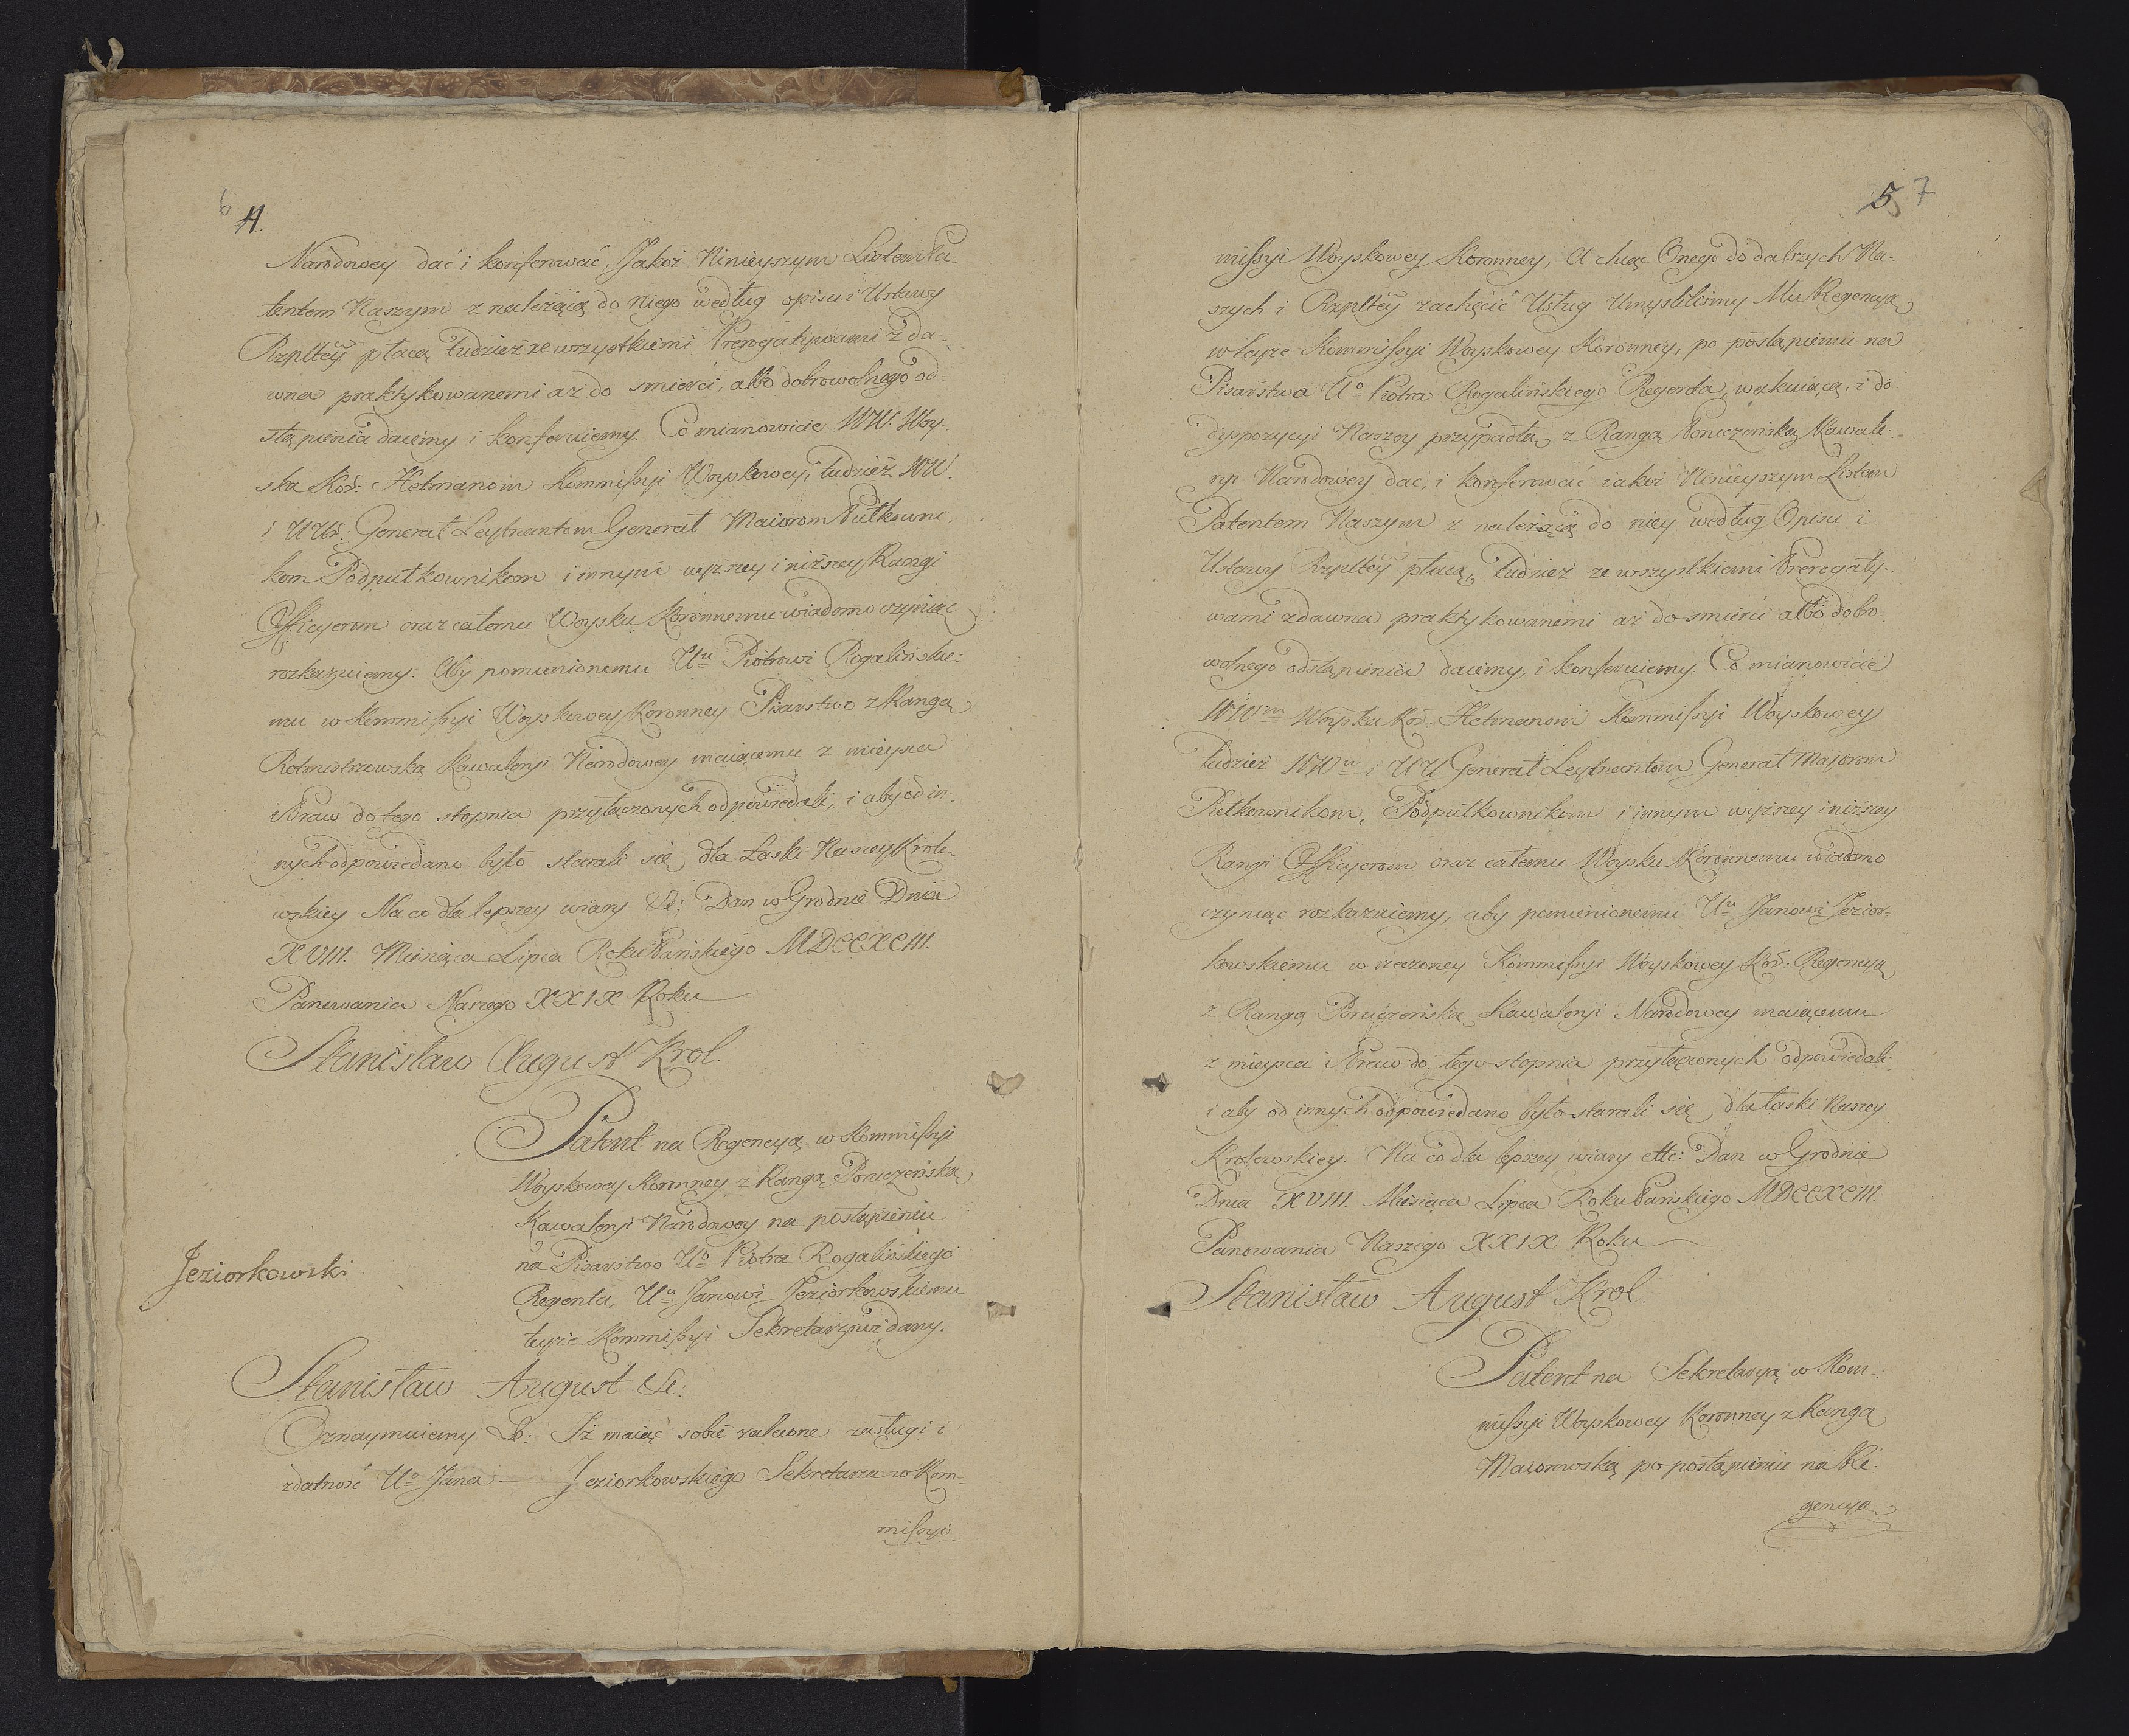 6 4.
Narodowey dać i konferować, Jakoż Ninieyszym Listem Pa-
tentem Naszym z należącą do niego według opisu i Ustawy
Rzpltey płacą tudzież ze wszystkiemi Prerogatywami z da-
wna praktykowanemi aż do smierci, albo dobrowolnego od-
stąpienia daiemy i konferuiemy. Co mianowicie WW. Woy-
ska Kor: Hetmanom Kommissyi Woyskowey, tudzież WW.
i UUr: Generał Leytnantom Generał Maiorom Pułkowni-
kom Podpułkownikom i innym wyższey i niższey Rangi
Officyerom oraz całemu Woysku Koronnemu wiadomo czyniąc
rozkazuiemy. Aby pomienionemu Uu Piotrowi Rogalińskie-
mu w Kommissyi Woyskowey Koronney Pisarstwo z Rangą
Rotmistrzowską Kawaleryi Narodowey maiącemu z mieysca
i Praw do tego stopnia przyłączonych odpowiedali, i aby od in-
nych odpowiedano było starali się, dla Łaski Naszey Krole-
wskiey Na co dla lepszey wiary &c: Dan w Grodnie Dnia
XVIII. Miesiąca Lipca Roku Pańskiego MDCCXCIII.
Panowania Naszego XXIX Roku
Stanisław August Krol.
Patent na Regencyą w Kommissyi
Woyskowey Koronney z Rangą Poruczeńską
Kawaleryi Narodowey na postąpieniu
na Pisarstwo Uo Piotra Rogalińskiego
Regenta, Uu Janowi Jeziorkowskiemu
teyże Kommissyi Sekretarzowi dany.
Jeziorkowski
Stanisław August &c:
Oznaymuiemy &c: Iż maiąc sobie zalecone zasługi i
zdatność Uo Jana Jeziorkowskiego Sekretarza w Kom-
missyi
5 7
missyi Woyskowey Koronney, A chcąc Onego do dalszych Na-
szych i Rzpltey zachęcić Usług Umyslilismy Mu Regencyą
w teyże Kommissyi Woyskowey Koronney, po postąpieniu na
Pisarstwo Uo Piotra Rogalińskiego Regenta, wakuiącą, i do
dyspozycyi Naszey przypadłą z Rangą Poruczeńską Kawale-
ryi Narodowey dać, i konferować iakoż Ninieyszym Listem
Patentem Naszym z należącą do niey według Opisu i
Ustawy Rzpltey płacą, tudzież ze wszystkiemi Prerogaty-
wami zdawna praktykowanemi aż do smierci albo dobro-
wolnego odstąpienia daiemy, i konferuiemy. Co mianowicie
WWm Woyska Kor: Hetmanom Kommissyi Woyskowey
tudzież WW i UU Generał Leytnantom Generał Majorom
Pułkownikom, Podpułkownikom i innym wyższey i niższey
Rangi Officyerom oraz całemu Woysku Koronnemu wiadomo
czyniąc rozkazuiemy, aby pomienionemu Uu Janowi Jezior-
kowskiemu w rzeczoney Kommissyi Woyskowey Kor: Regencyą
z Rangą Poruczeńską Kawaleryi Narodowey maiącemu
z mieysca i Praw do tego stopnia przyłączonych odpowiedali
i aby od innych odpowiedano było starali się, dla łaski Naszey
Krolewskiey. Na co dla lepszey wiary etc: Dan w Grodnie
Dnia XVIII. Miesiąca Lipca Roku Pańskiego MDCCXCIII.
Panowania Naszego XXIX Roku
Stanisław August Krol.
Patent na Sekretaryą w Kom-
missyi Woyskowey Koronney z Rangą
Maiorowską po postąpieniu na Re-
gencyą